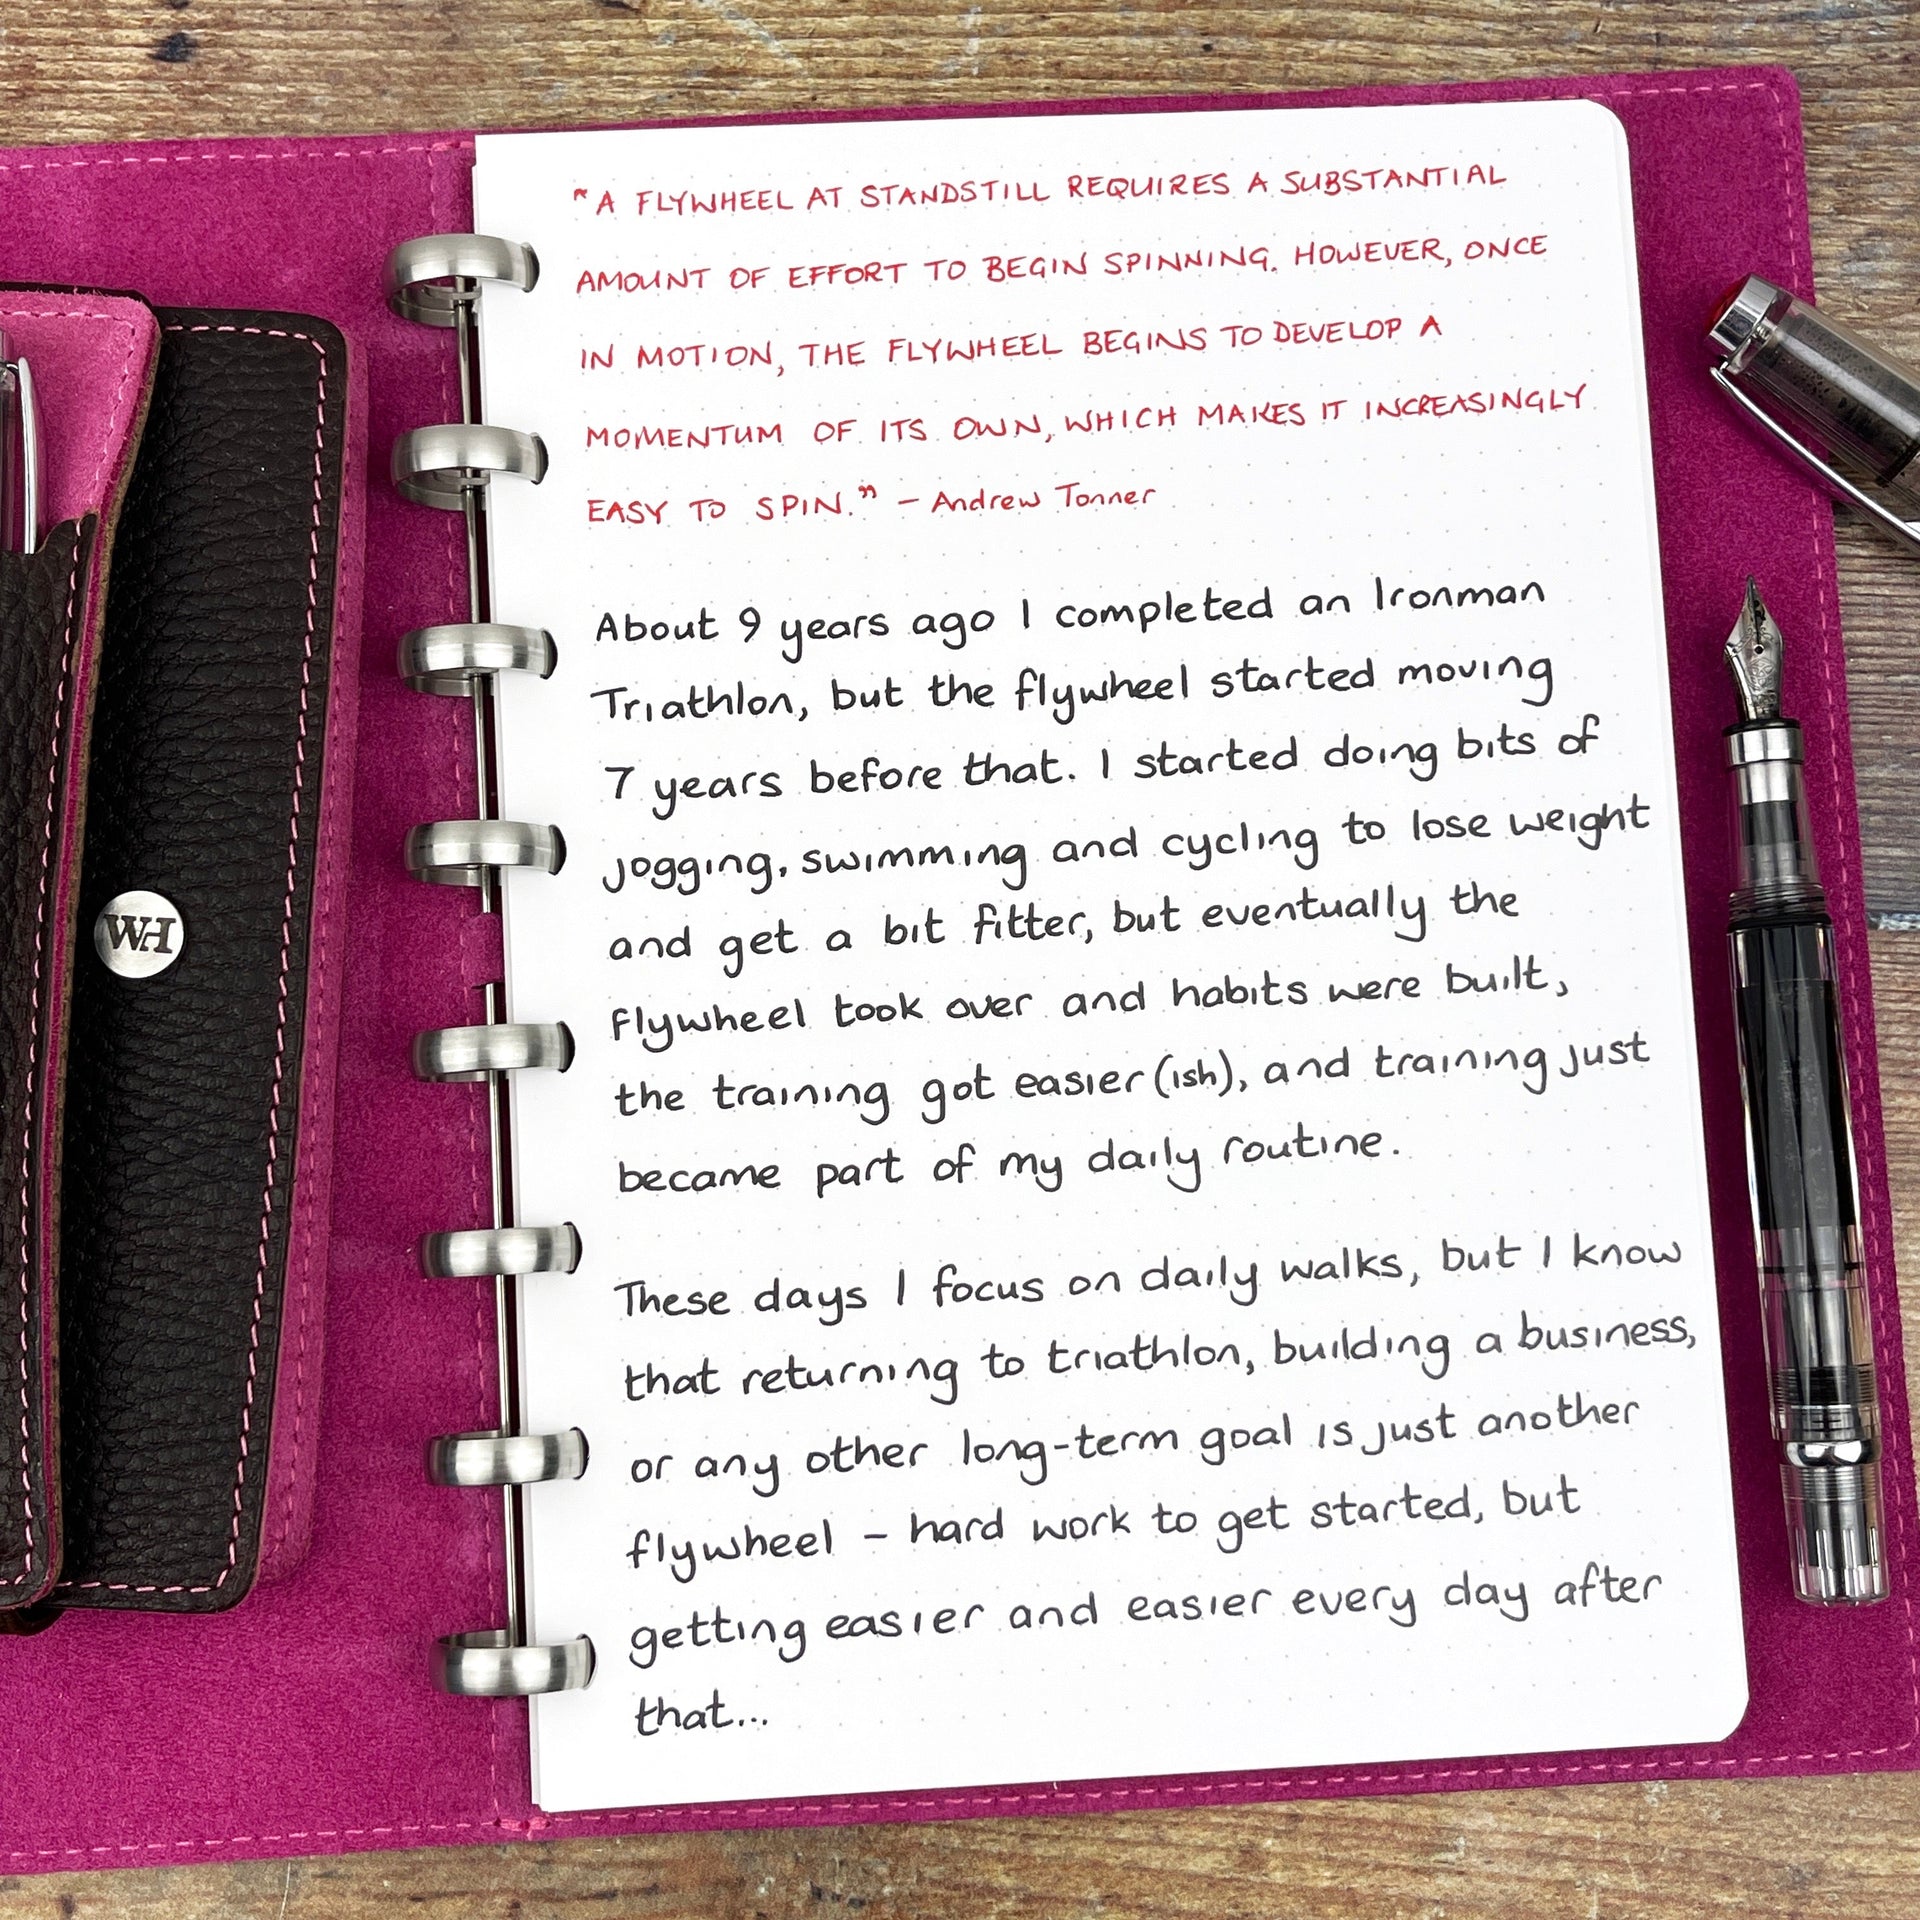 WH
"A FLYWHEEL AT STANDSTILL REQUIRES A SUBSTANTIAL
AMOUNT OF EFFORT TO BEGIN SPINNING. HOWEVER, ONCE
IN MOTION, THE FLYWHEEL BEGINS TO DEVELOP A
MOMENTUM OF ITS OWN, WHICH MAKES IT INCREASINGLY
EASY TO SPIN." – Andrew Tonner
About 9 years ago I completed an Ironman
Triathlon, but the flywheel started moving
7 years before that. I started doing bits of
jogging, swimming and cycling to lose weight
and get a bit fitter, but eventually the
flywheel took over and habits were built,
the training got easier (ish), and training just
became part of my daily routine.
These days I focus on daily walks, but I know
that returning to triathlon, building a business,
or any other long-term goal is just another
flywheel – hard work to get started, but
getting easier and easier every day after
that...